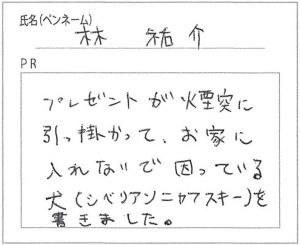 氏名(ペンネーム)
林 祐介
PR
プレゼントが煙突に
引っ掛かって、お家に
入れないで困っている
犬(シベリアンハスキー)を
書きました。